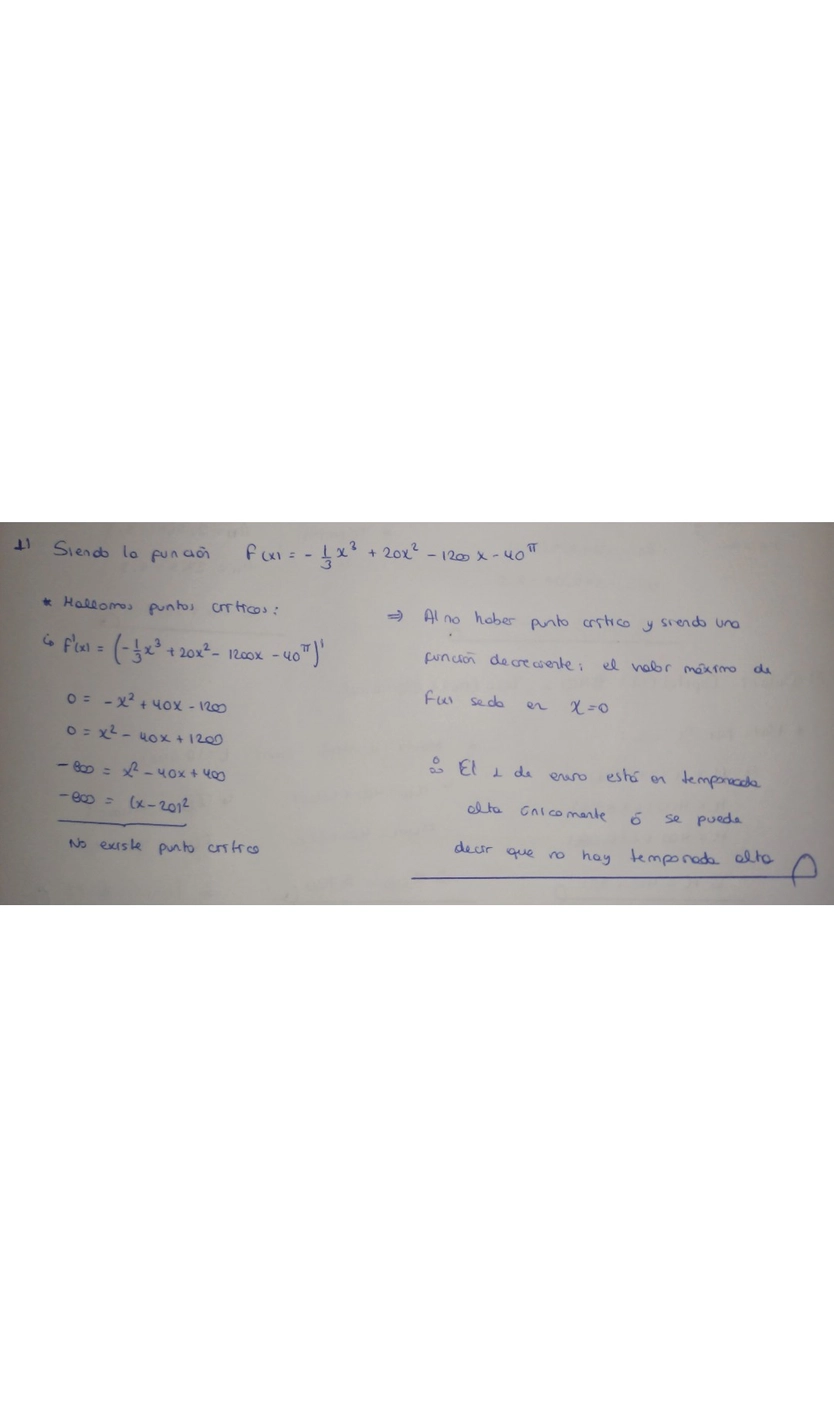 1) Siendo la función f(x) = - 1/3 x³ + 20x² - 1200x - 40^π
* Hallamos puntos críticos:
↳ f'(x) = (-1/3 x³ + 20x² - 1200x - 40^π)'
0 = -x² + 40x - 1200
0 = x² - 40x + 1200
-800 = x² - 40x + 400
-800 = (x-20)²
No existe punto crítico
⇒ Al no haber punto crítico y siendo una
función decreciente; el valor máximo de
f(x) se da en x=0
∴ El 1 de enero está en temporada
alta únicamente ó se puede
decir que no hay temporada alta